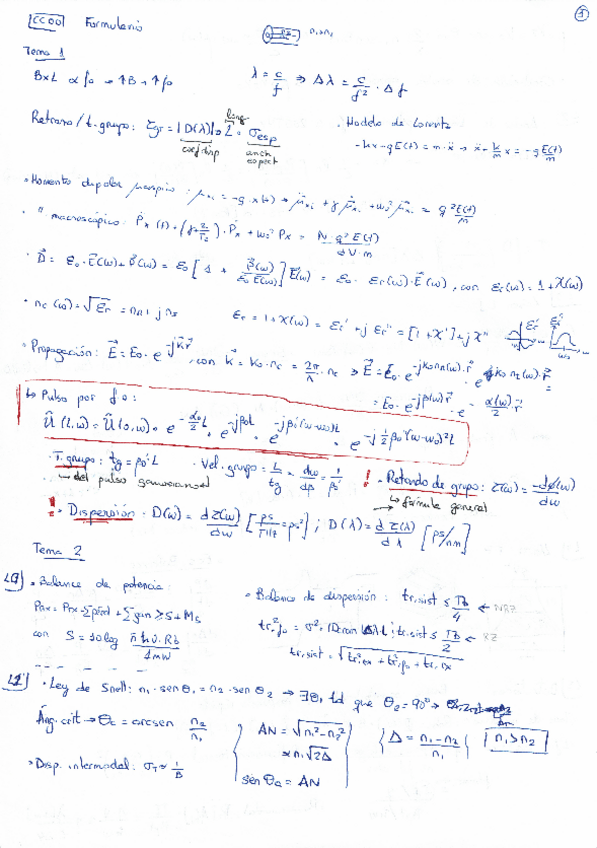 ①
CCOO Formulario n₁>n₂
Tema 1
B×L α f₀ → ↑B → ↑f₀ λ = c/f ⇒ Δλ = c/f² · Δf
Retraso/t. grupo: τgr = |D(λ)| · L · σesp
long
coef disp anch espect
Modelo de Lorentz
-kx - qE(t) = m·ẍ → ẍ + k/m x = -q E(t)/m
• Momento dipolar μoscópico: μxi = -q·x(t) → μ̈xi + γ μ̇xi + ω₀² μxi = q² E(t)/m
• " macroscópico: P̈x(t) + (γ + 2/T₂)·Ṗx + ω₀² Px = N·q² E(t)/dV·m
• D̄ = ε₀·Ē(ω) + P̄(ω) = ε₀ [1 + P̄(ω)/ε₀Ē(ω)] Ē(ω) = ε₀·εr(ω)·Ē(ω), con εr(ω) = 1 + χ(ω)
• nc(ω) = √εr = nR + j nI εr = 1 + χ(ω) = εr' + j εr'' = [1 + χ'] + j χ'' εr' εr''
• Propagación: Ē = E₀ · e^-jk̄r̄, con k̄ = k₀·nc = 2π/λ · nc ⇒ Ē = E₀ · e^-jk₀nR(ω)·r̄ · e^jk₀nI(ω)·r̄ =
= E₀ · e^-jβ(ω)·r̄ · e^-α(ω)/2·r̄
! ↳ Pulso por f.o:
Û(L,ω) = Û(0,ω) · e^-α₀/2 L · e^-jβ₀L · e^-jβ₀'(ω-ω₀)L · e^-j½β₀''(ω-ω₀)²L
• T. grupo: tg = β₀'·L • Vel. grupo: L/tg = dω/dβ = 1/β₀' ! • Retardo de grupo: τ(ω) = -dϕ(ω)/dω
→ del pulso gaussiano → fórmula general
! • Dispersión: D(ω) = dτ(ω)/dω [ps/THz = ps²]; D(λ) = dτ(λ)/dλ [ps/nm]
Tema 2
• Balance de potencia:
con S = 10 log n̄·h·υ·Rb/1mW
• Balance de dispersión: tr,sist ≤ TB/4 ← NRZ
tr,sist ≤ TB/2 ← RZ
tr,sist = √(tr²,tx + tr²,f₀ + tr,rx)
• Ley de Snell: n₁·sen θ₁ = n₂·sen θ₂ → ∃θ₁ tal que θ₂ = 90º
Áng. crit → θc = arcsen n₂/n₁
AN = √(n₁² - n₂²)
≈ n₁√2Δ
sen θa = AN
Δ = n₁ - n₂/n₁
n₁ > n₂
• Disp. intermodal: σT ≈ 1/B